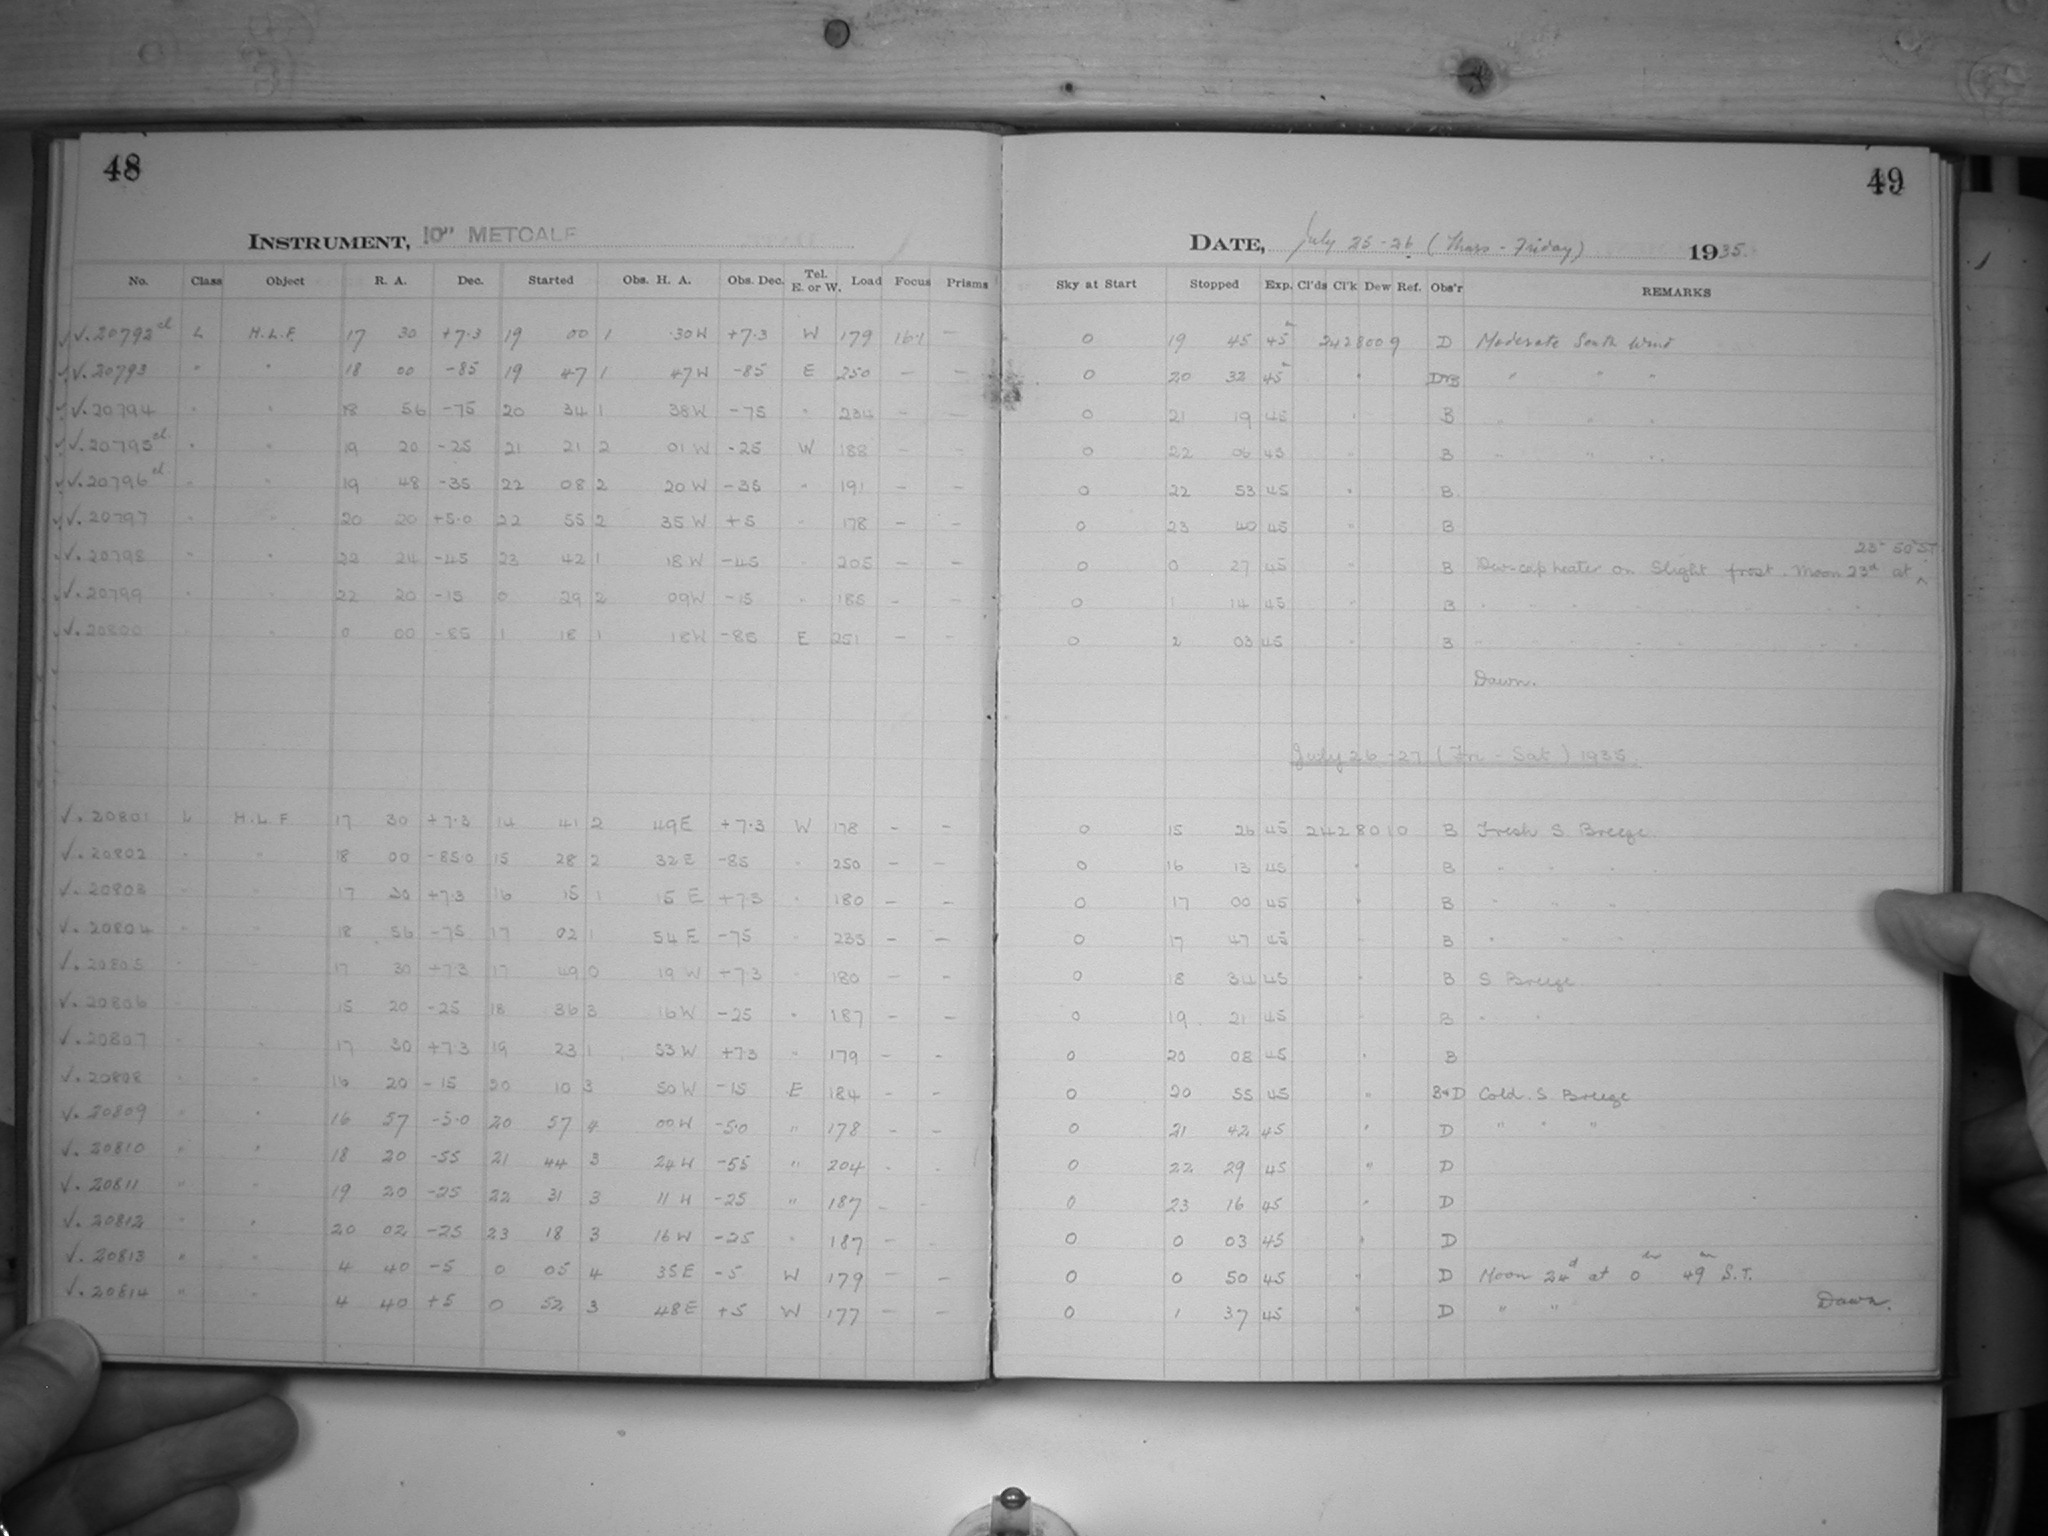 48
49
INSTRUMENT, 10" METCALF
DATE, July 25-26 (Thurs - Friday) 1935.
No. Class Object R. A. Dec. Started Obs. H. A. Obs. Dec. Tel. E. or W. Load Focus Prisms Sky at Start Stopped Exp. Cl'ds Cl'k Dew Ref. Obs'r REMARKS
√√.20792 cl L H.L.F. 17 30 +7.3 19 00 1 30W +7.3 W 179 16.1 — 0 19 45 45 m 2428009 D Moderate South Wind
√√.20793 " " 18 00 -85 19 47 1 47W -85 E 250 — — 0 20 32 45 m " D+B " " "
√√.20794 " " 18 56 -75 20 34 1 38W -75 " 234 — — 0 21 19 45 " B " " "
√√.20795 cl " " 19 20 -25 21 21 2 01W -25 W 188 — — 0 22 06 45 " B " " "
√√.20796 cl " " 19 48 -35 22 08 2 20W -35 " 191 — — 0 22 53 45 " B
√√.20797 " " 20 20 +5.0 22 55 2 35W +5 " 178 — — 0 23 40 45 " B
√√.20798 " " 22 24 -45 23 42 1 18W -45 " 205 — — 0 0 27 45 " B Dew-cap heater on Slight frost. Moon 23d at 23h 50m ST
√√.20799 " " 22 20 -15 0 29 2 09W -15 " 185 — — 0 1 14 45 " B " " " " " " "
√√.20800 " " 0 00 -85 1 18 1 18W -85 E 251 — — 0 2 03 45 " B " " " " " " "
Dawn.
July 26-27 (Fri - Sat) 1935.
√.20801 L H.L.F 17 30 +7.3 14 41 2 49E +7.3 W 178 — — 0 15 26 45 2428010 B Fresh S Breeze.
√.20802 " " 18 00 -85.0 15 28 2 32E -85 " 250 — — 0 16 13 45 " B " " "
√.20803 " " 17 30 +7.3 16 15 1 15E +7.3 " 180 — — 0 17 00 45 " B " " "
√.20804 " " 18 56 -75 17 02 1 54E -75 " 235 — — 0 17 47 45 " B " " "
√.20805 " " 17 30 +7.3 17 49 0 19W +7.3 " 180 — — 0 18 34 45 " B S Breeze.
√.20806 " " 15 20 -25 18 36 3 16W -25 " 187 — — 0 19 21 45 " B " "
√.20807 " " 17 30 +7.3 19 23 1 53W +7.3 " 179 — — 0 20 08 45 " B
√.20808 " " 16 20 -15 20 10 3 50W -15 E 184 — — 0 20 55 45 " B+D Cold. S Breeze
√.20809 " " 16 57 -5.0 20 57 4 00W -5.0 " 178 — — 0 21 42 45 " D " " "
√.20810 " " 18 20 -55 21 44 3 24W -55 " 204 - - 0 22 29 45 " D
√.20811 " " 19 20 -25 22 31 3 11W -25 " 187 - - 0 23 16 45 " D
√.20812 " " 20 02 -25 23 18 3 16W -25 " 187 — — 0 0 03 45 " D
√.20813 " " 4 40 -5 0 05 4 35E -5 W 179 — — 0 0 50 45 " D Moon 24d at 0hr 49m S.T.
√.20814 " " 4 40 +5 0 52 3 48E +5 W 177 — — 0 1 37 45 " D " " Dawn.